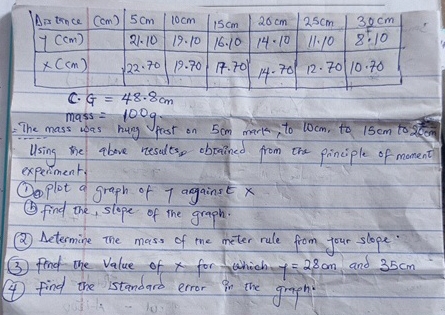 Distance (cm) 5cm 10cm 15cm 20cm 25cm 30cm
y (cm) 21.10 19.10 16.10 14.10 11.10 8.10
x (cm) 22.70 19.70 17.70 14.70 12.70 10.70
C.G = 48.8cm
mass = 100g.
The mass was hung first on 5cm mark, to 10cm, to 15cm to 20cm
Using the above results, obtained from the principle of moment
experiment.
① ⓐ plot a graph of y against x
ⓑ find the, slope of the graph.
② Determine the mass of the meter rule from your slope.
③ find the value of x for which y = 28cm and 35cm
④ find the standard error in the graph.